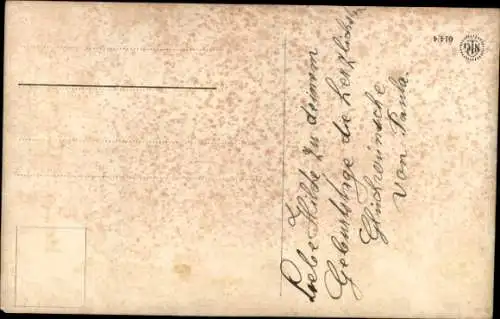 Liebe Hilde zu deinem
Geburtstage die herzlichsten
Glückwünsche
von Paula.